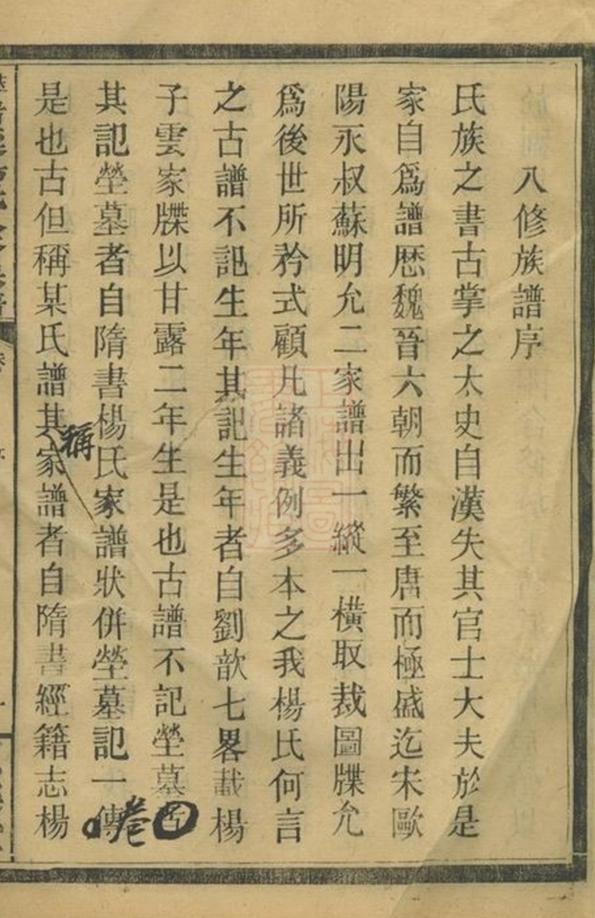 八修族譜序
氏族之書古掌之太史自漢失其官士大夫於是
家自爲譜歷魏晉六朝而繁至唐而極盛迄宋歐
陽永叔蘇明允二家譜出一縱一橫取裁圖牒允
爲後世所矜式顧凡諸義例多本之我楊氏何言
之古譜不記生年其記生年者自劉歆七畧載楊
子雲家牒以甘露二年生是也古譜不記塋墓
其記塋墓者自隋書楊氏家譜狀併塋墓記一傳
卷
是也古但稱某氏譜其家譜者自隋書經籍志楊
稱